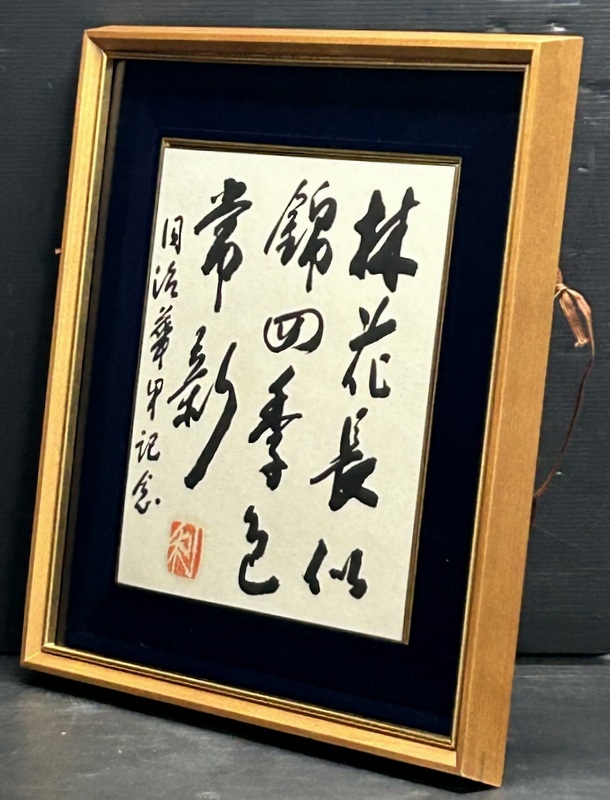 林花長似
錦四季色
常新
国治華甲記念
利